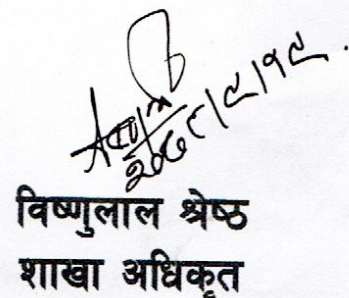 २०७८/८/१८
विष्णुलाल श्रेष्ठ
शाखा अधिकृत